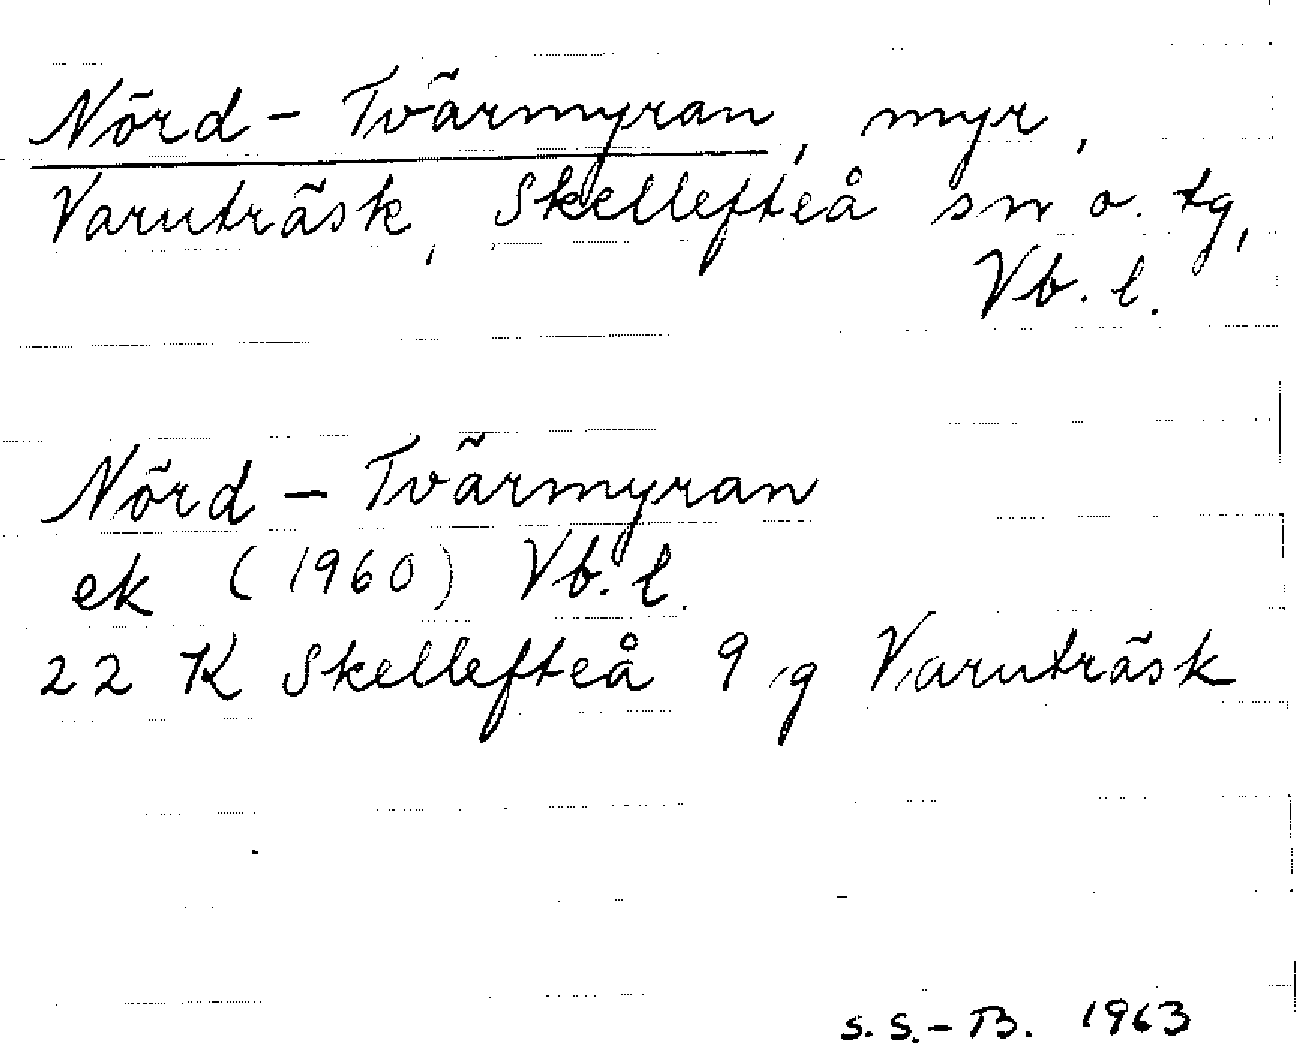 Nörd - Tvärmyran, myr,
Varuträsk, Skellefteå sn o. tg,
Vb. l.
Nörd - Tvärmyran
ek (1960) Vb. l.
22 K Skellefteå 9 g Varuträsk
S. S. - B. 1963